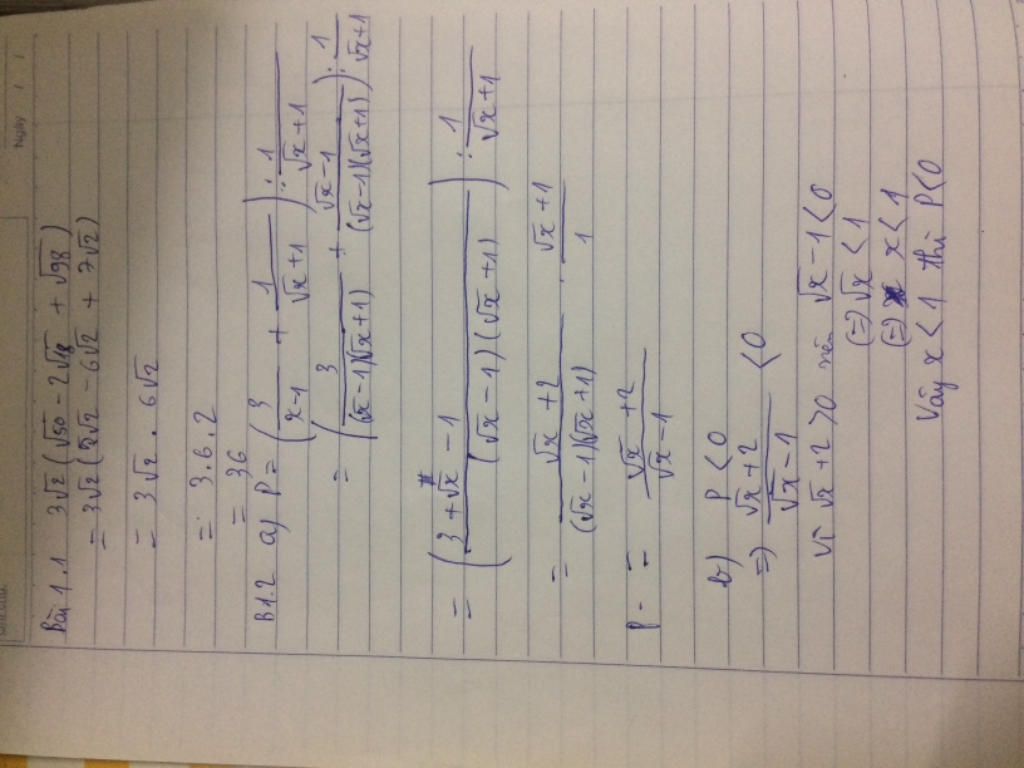 Ngày / /
Bài 1.1 3√2(√50 - 2√18 + √98)
= 3√2(5√2 - 6√2 + 7√2)
= 3√2 . 6√2
= 3.6.2
= 36
B1.2 a) P = (3/(x-1) + 1/(√x+1)) : 1/(√x+1)
= (3/((√x-1)(√x+1)) + (√x-1)/((√x-1)(√x+1))) : 1/(√x+1)
= ((3+√x-1)/((√x-1)(√x+1))) : 1/(√x+1)
= (√x+2)/((√x-1)(√x+1)) . (√x+1)/1
P = (√x+2)/(√x-1)
b) P<0
=> (√x+2)/(√x-1) <0
Vì √x+2 >0 nên √x-1<0
(=) √x < 1
(=) x<1
Vậy x<1 thì P<0